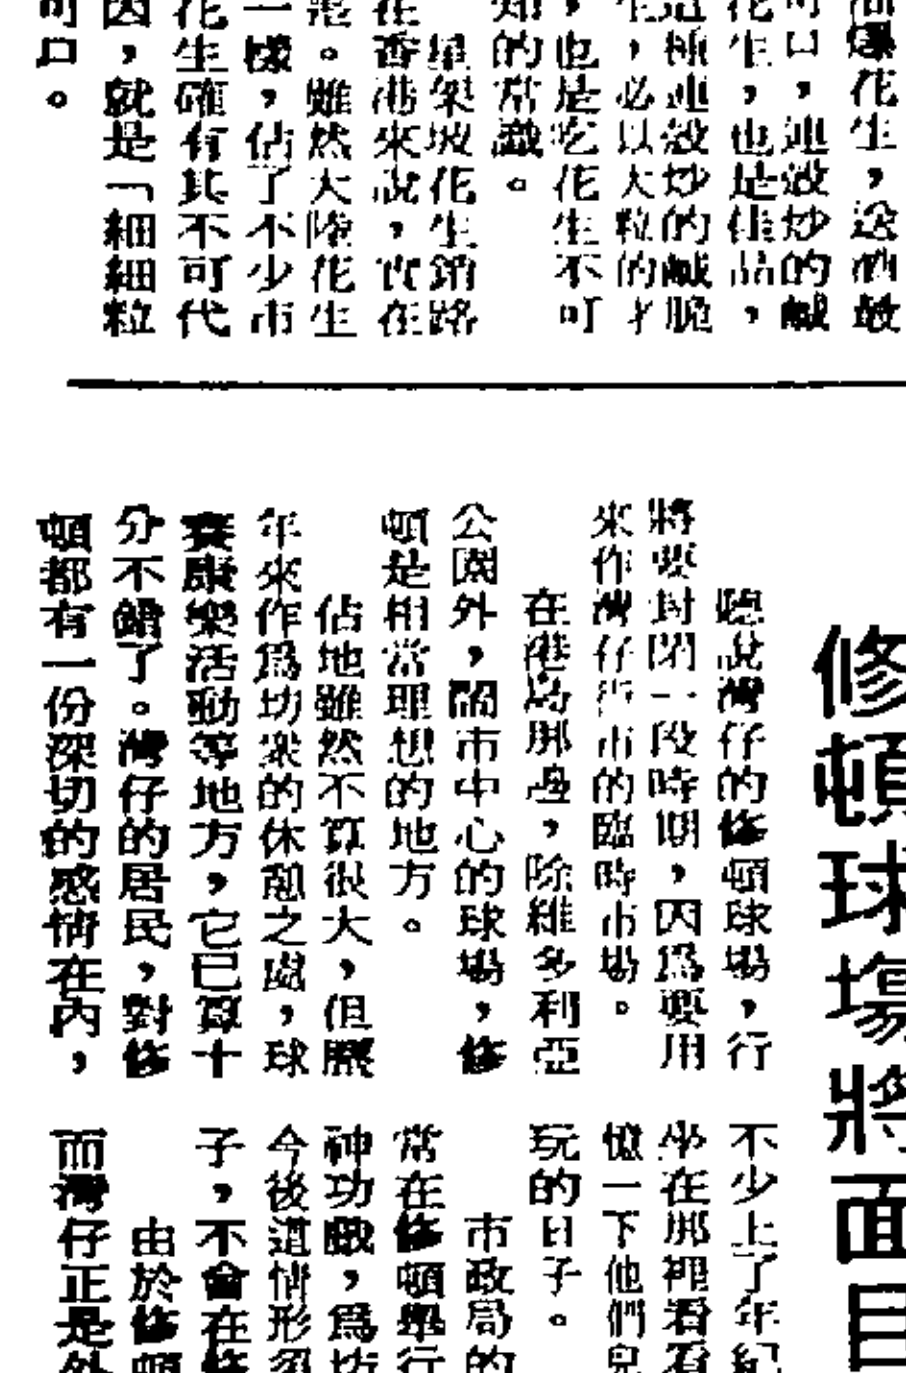 爆花生,送酒最
可口,連殼炒的鹹
花生,也是佳品,
這種連殼炒的鹹脆
生,必以大粒的才
,也是吃花生不可
知的常識。
星架坡花生銷路
在香港來說,實在
。雖然大陸花生
一樣,佔了不少市
花生確有其不可代
因,就是「細細粒
可口。
修頓球場將面目
聽說灣仔的修頓球場,行
將要封閉一段時期,因爲要用
來作灣仔街市的臨時市場。
在港島那邊,除維多利亞
公園外,鬧市中心的球場,修
頓是相當理想的地方。
佔地雖然不算很大,但歷
年來作爲坊衆的休憩之處,球
賽康樂活動等地方,它已算十
分不錯了。灣仔的居民,對修
頓都有一份深切的感情在內,
不少上了年紀
坐在那裡看看
憶一下他們兒
玩的日子。
市政局的
常在修頓舉行
神功戲,爲坊
今後這情形須
子,不會在修
由於修頓
而灣仔正是外